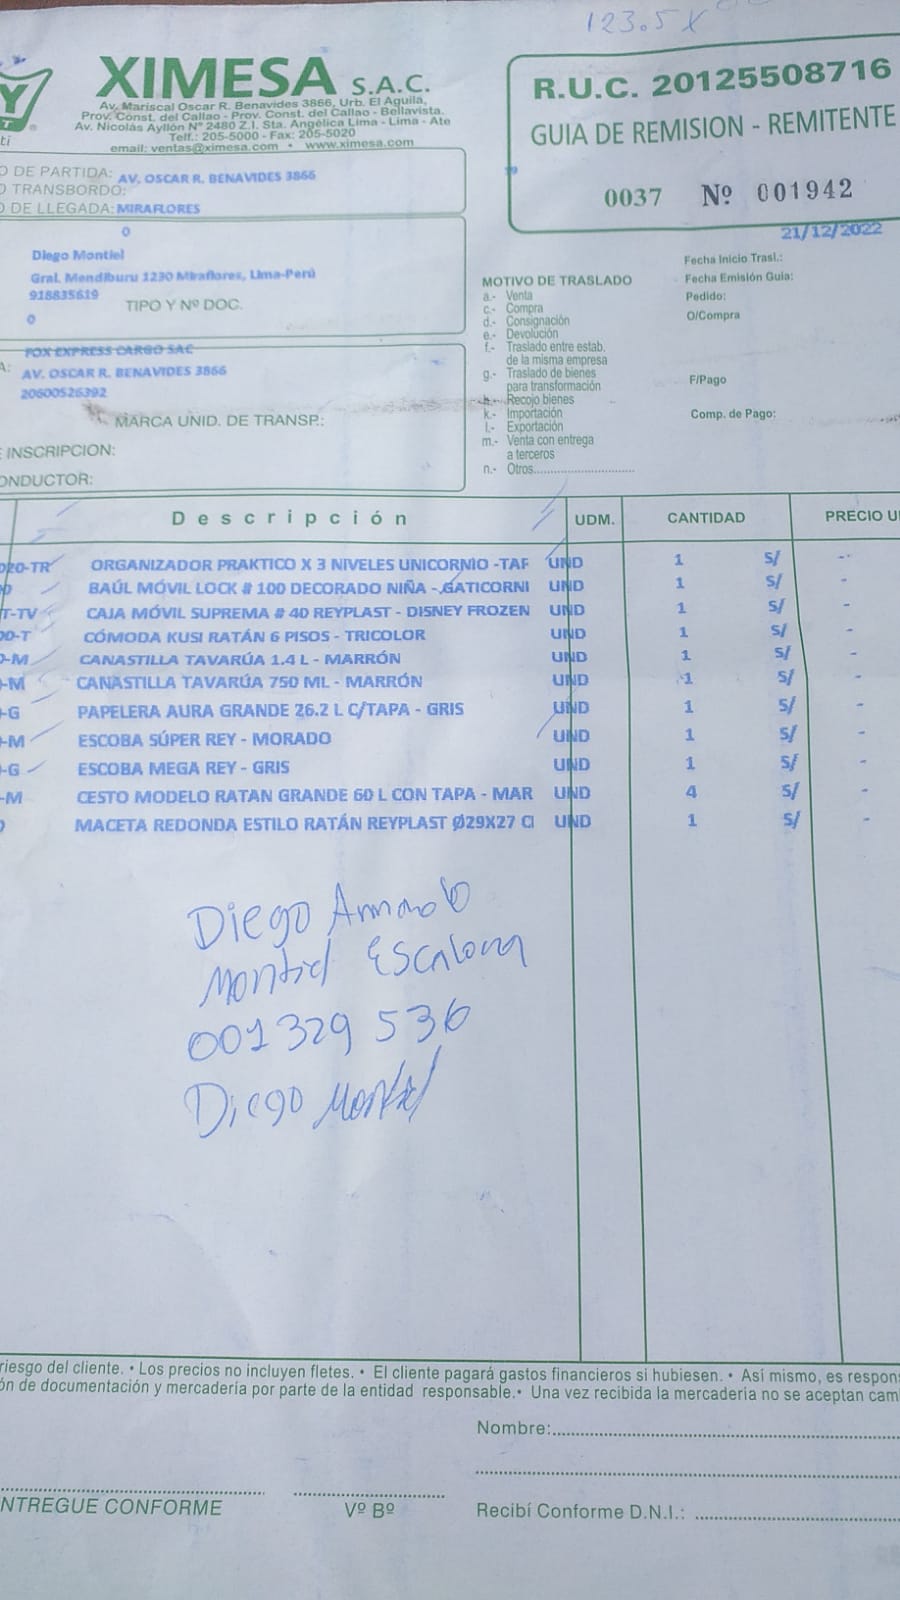 123.5 X
XIMESA S.A.C.
Av. Mariscal Oscar R. Benavides 3866, Urb. El Aguila,
Prov. Const. del Callao - Prov. Const. del Callao - Bellavista.
Av. Nicolás Ayllón Nº 2480 Z.I. Sta. Angélica Lima - Lima - Ate
Telf.: 205-5000 - Fax: 205-5020
email: ventas@ximesa.com • www.ximesa.com
R.U.C. 20125508716
GUIA DE REMISION - REMITENTE
0037 Nº 001942
21/12/2022
O DE PARTIDA: AV. OSCAR R. BENAVIDES 3866
O TRANSBORDO:
O DE LLEGADA: MIRAFLORES
0
Diego Montiel
Gral. Mendiburu 1230 Miraflores, Lima-Perú
918835619
TIPO Y Nº DOC.
0
FOX EXPRESS CARGO SAC
A: AV. OSCAR R. BENAVIDES 3866
20600526392
MARCA UNID. DE TRANSP.:
E INSCRIPCION:
ONDUCTOR:
MOTIVO DE TRASLADO
a.- Venta
c.- Compra
d.- Consignación
e.- Devolución
f.- Traslado entre estab.
de la misma empresa
g.- Traslado de bienes
para transformación
h.- Recojo bienes
k.- Importación
l.- Exportación
m.- Venta con entrega
a terceros
n.- Otros..............................
Fecha Inicio Trasl.:
Fecha Emisión Guia:
Pedido:
O/Compra
F/Pago
Comp. de Pago:
Descripción UDM. CANTIDAD PRECIO U
020-TR ORGANIZADOR PRAKTICO X 3 NIVELES UNICORNIO -TAF UND 1 S/ -
BAÚL MÓVIL LOCK # 100 DECORADO NIÑA - GATICORNI UND 1 S/ -
T-TV CAJA MÓVIL SUPREMA # 40 REYPLAST - DISNEY FROZEN UND 1 S/ -
00-T CÓMODA KUSI RATÁN 6 PISOS - TRICOLOR UND 1 S/ -
0-M CANASTILLA TAVARÚA 1.4 L - MARRÓN UND 1 S/ -
-M CANASTILLA TAVARÚA 750 ML - MARRÓN UND 1 S/ -
-G PAPELERA AURA GRANDE 26.2 L C/TAPA - GRIS UND 1 S/ -
-M ESCOBA SÚPER REY - MORADO UND 1 S/ -
-G ESCOBA MEGA REY - GRIS UND 1 S/ -
-M CESTO MODELO RATAN GRANDE 60 L CON TAPA - MAR UND 4 S/ -
MACETA REDONDA ESTILO RATÁN REYPLAST Ø29X27 CI UND 1 S/ -
Diego Armando
Montiel Escalona
001329 536
Diego Montiel
riesgo del cliente. • Los precios no incluyen fletes. • El cliente pagará gastos financieros si hubiesen. • Así mismo, es respons
ón de documentación y mercadería por parte de la entidad responsable. • Una vez recibida la mercadería no se aceptan cam
Nombre:
NTREGUE CONFORME
Vº Bº
Recibí Conforme D.N.I.: